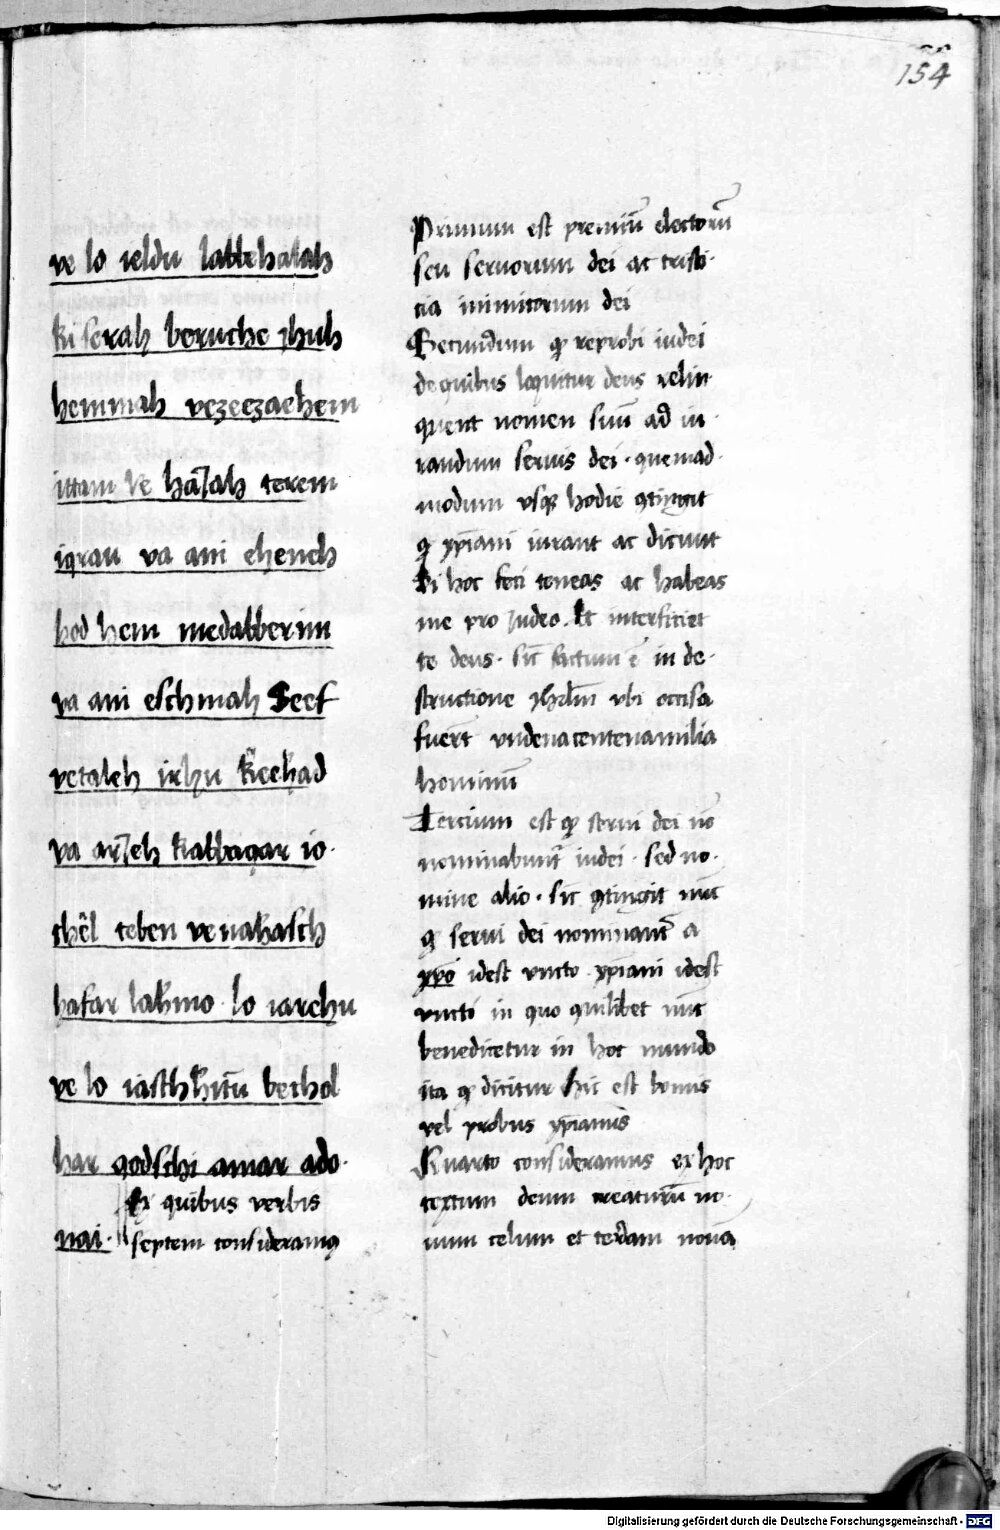 154
ve lo ieldu labbehalah
ki serah beruche jhuh
hemmah vezeezaehem
ittam ve haiah terem
iqrau va ani ehench
hod hem medabberim
va ani eschmah Seef
vetaleh irhu keehad
va arieh kabbaqar io·
chêl teben venahasch
hafar lahmo lo iarehu
ve lo iaschhitu bechol
har qodschi amar ado·
nai· Ex quibus verbis
septem consideramus
Primum est premiū electorū
seu seruorum dei ac tristi·
cia inimicorum dei
Secundum qꝫ reprobi iudei
de quibus loquitur deus relin
quent nomen suū ad iu·
randum seruis dei · quemad·
modum vsqꝫ hodie ꝯtingit
qꝫ xp̄iani iurant ac dicunt
Si hoc feci teneas ac habeas
me pro Judeo. Et interficiet
te deus · sic̄ factum ē in de·
structione Jhrlm̄ vbi occisa
fuer̄t vndena centena milia
hominū
Tercium est qꝫ serui dei nō
nominabunt̄ iudei · sed no·
mine alio · sic̄ ꝯtingit nūc
qꝫ serui dei nominant̄ a
xp̄o idest vncto xp̄iani idest
vncti in quo quilibet nūc
benedicetur in hoc mundo
ita qꝫ dicitur hic est bonus
vel probus xp̄ianus
Quarto consideramus ex hoc
textum deum creaturū no·
uum celum et terram nouā
Digitalisierung gefördert durch die Deutsche Forschungsgemeinschaft - DFG